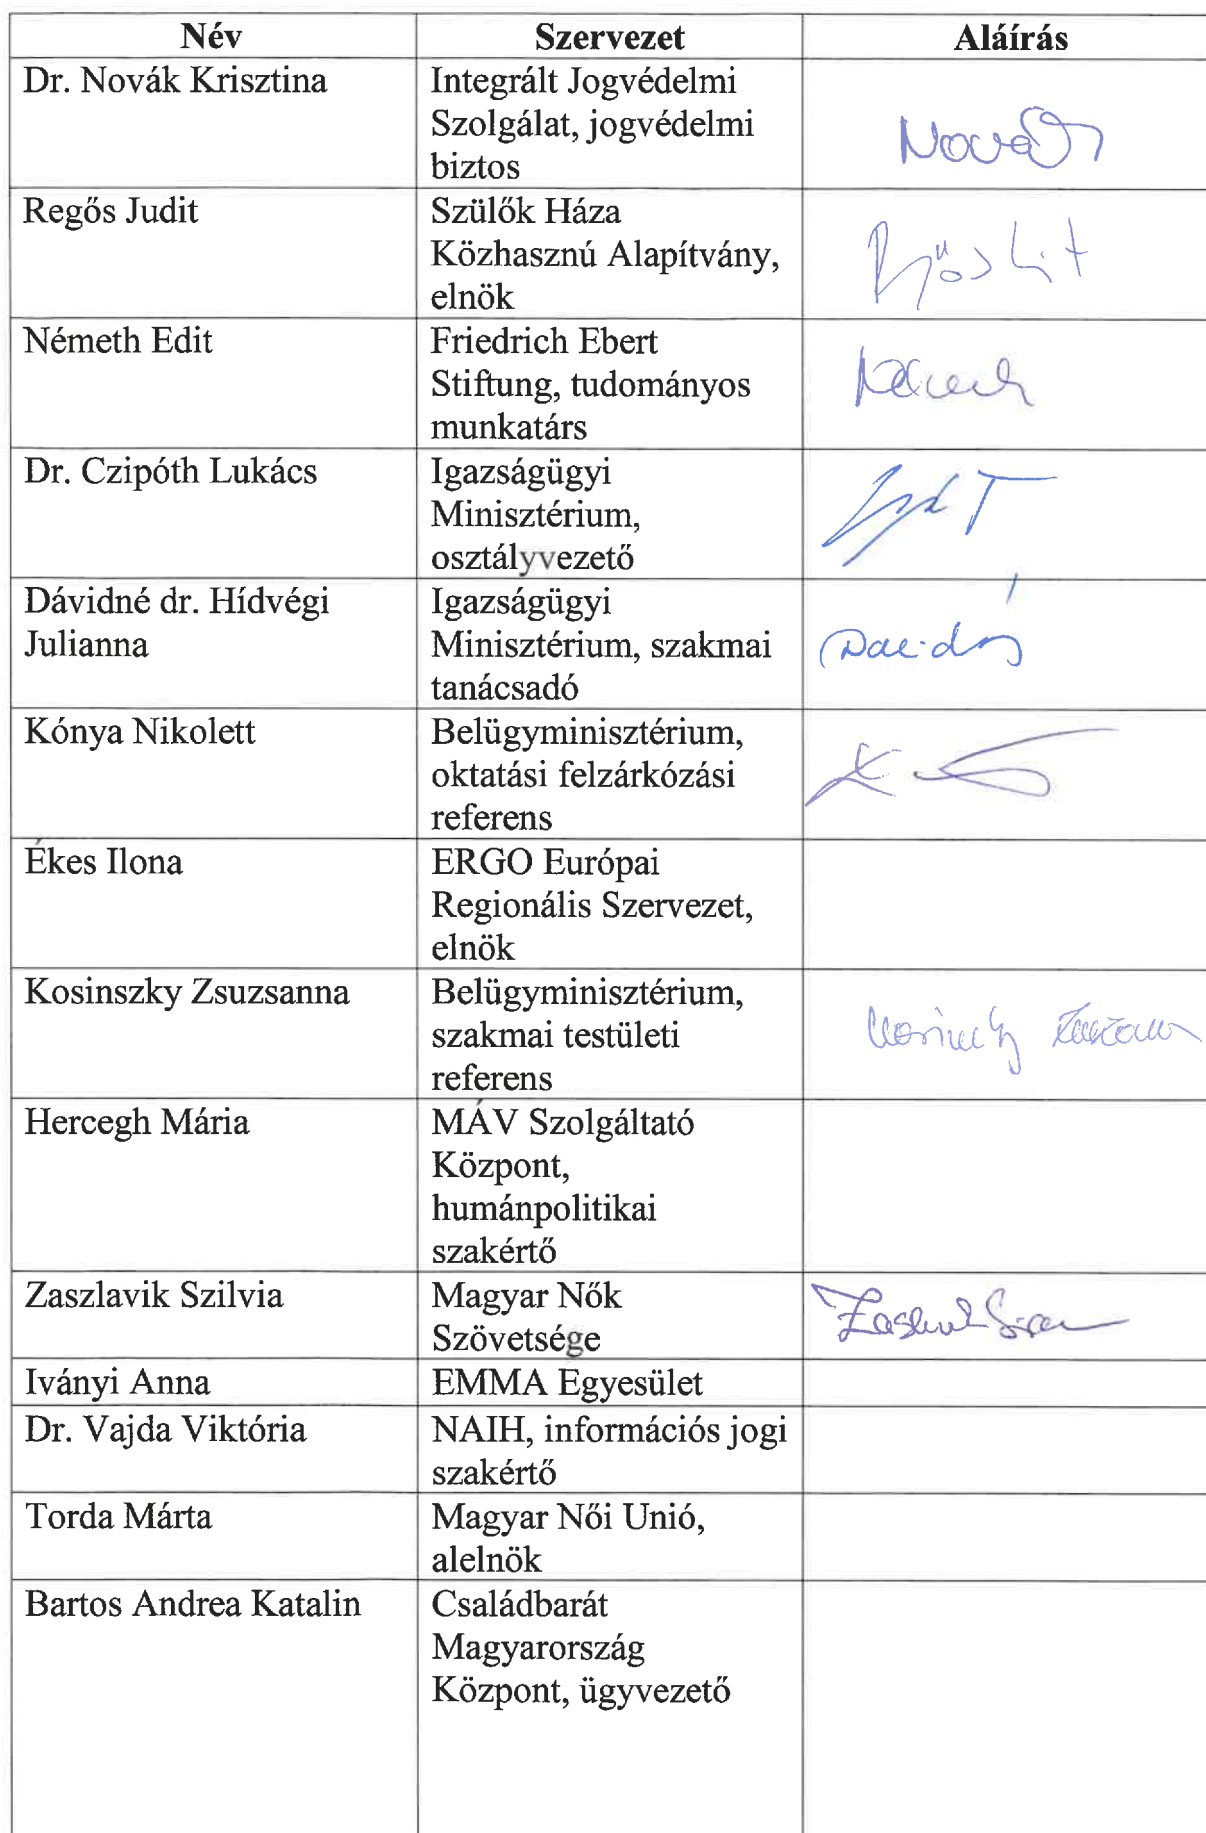 Név Szervezet Aláírás
Dr. Novák Krisztina Integrált Jogvédelmi
Szolgálat, jogvédelmi
biztos
Regős Judit Szülők Háza
Közhasznú Alapítvány,
elnök
Németh Edit Friedrich Ebert
Stiftung, tudományos
munkatárs
Dr. Czipóth Lukács Igazságügyi
Minisztérium,
osztályvezető
Dávidné dr. Hídvégi Igazságügyi
Julianna Minisztérium, szakmai
tanácsadó
Kónya Nikolett Belügyminisztérium,
oktatási felzárkózási
referens
Ékes Ilona ERGO Európai
Regionális Szervezet,
elnök
Kosinszky Zsuzsanna Belügyminisztérium,
szakmai testületi
referens
Hercegh Mária MÁV Szolgáltató
Központ,
humánpolitikai
szakértő
Zaszlavik Szilvia Magyar Nők
Szövetsége
Iványi Anna EMMA Egyesület
Dr. Vajda Viktória NAIH, információs jogi
szakértő
Torda Márta Magyar Női Unió,
alelnök
Bartos Andrea Katalin Családbarát
Magyarország
Központ, ügyvezető